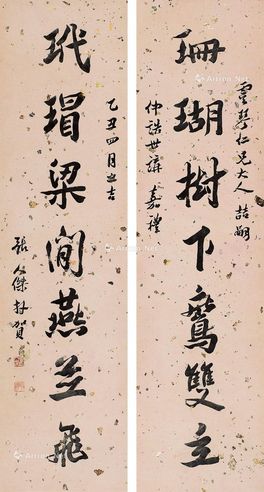 雲琴仁兄大人喆嗣
仲誥世講嘉禮
珊瑚樹下鸞雙立
玳瑁梁間燕並飛
乙丑四月之吉
張人傑拜賀